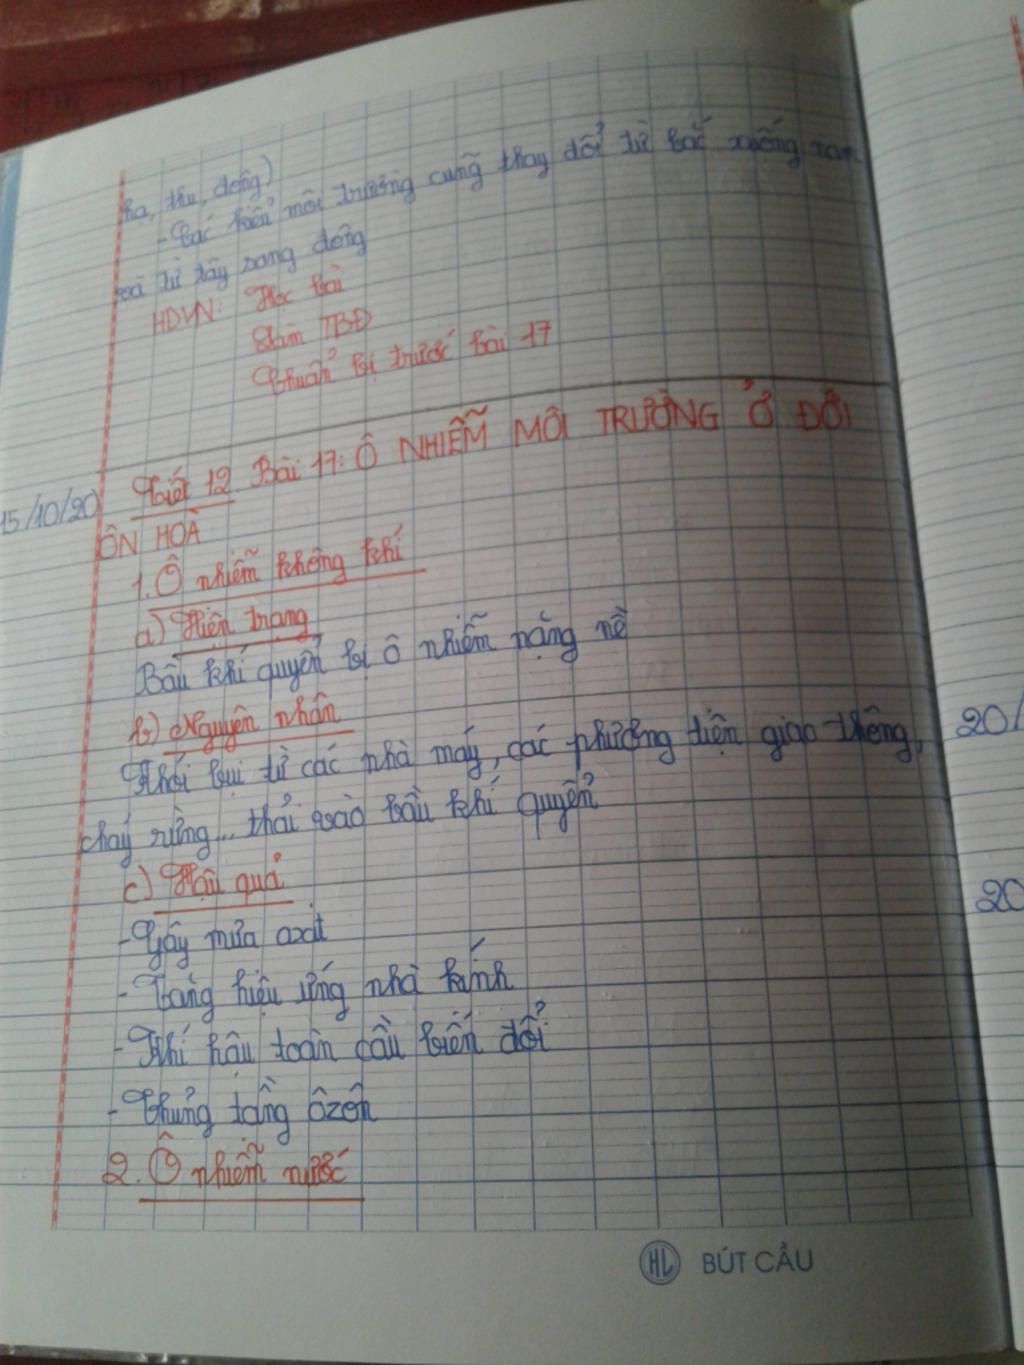 hạ, thu, đông)
- Các kiểu môi trường cũng thay đổi từ bắc xuống nam
và từ tây sang đông
HDVN: Học bài
Làm TBĐ
Chuẩn bị trước bài 17
15/10/20 Tiết 12. Bài 17: Ô NHIỄM MÔI TRƯỜNG Ở ĐỚI
ÔN HOÀ
1. Ô nhiễm không khí
a) Hiện trạng
Bầu khí quyển bị ô nhiễm nặng nề
b) Nguyên nhân
Khói bụi từ các nhà máy, các phương tiện giao thông,
cháy rừng... thải vào bầu khí quyển
c) Hậu quả
- Gây mưa axít
- Tăng hiệu ứng nhà kính
- Khí hậu toàn cầu biến đổi
- Thủng tầng ôzôn
2. Ô nhiễm nước
HL BÚT CẦU
20/
20